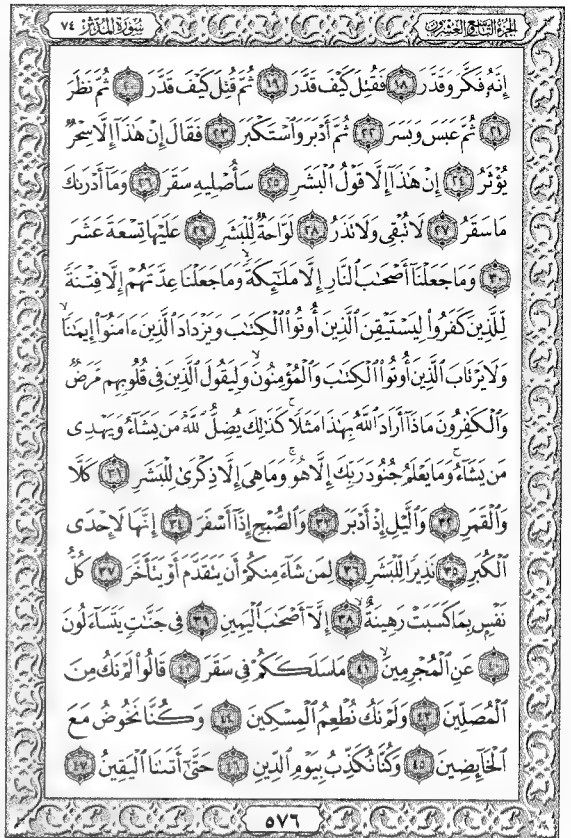 الجزء التاسع والعشرون
سورة المدثر ٧٤
إِنَّهُۥ فَكَّرَ وَقَدَّرَ ١٨ فَقُتِلَ كَيْفَ قَدَّرَ ١٩ ثُمَّ قُتِلَ كَيْفَ قَدَّرَ ٢٠ ثُمَّ نَظَرَ
٢١ ثُمَّ عَبَسَ وَبَسَرَ ٢٢ ثُمَّ أَدْبَرَ وَٱسْتَكْبَرَ ٢٣ فَقَالَ إِنْ هَٰذَآ إِلَّا سِحْرٌ
يُؤْثَرُ ٢٤ إِنْ هَٰذَآ إِلَّا قَوْلُ ٱلْبَشَرِ ٢٥ سَأُصْلِيهِ سَقَرَ ٢٦ وَمَآ أَدْرَىٰكَ
مَا سَقَرُ ٢٧ لَا تُبْقِى وَلَا تَذَرُ ٢٨ لَوَّاحَةٌ لِّلْبَشَرِ ٢٩ عَلَيْهَا تِسْعَةَ عَشَرَ
٣٠ وَمَا جَعَلْنَآ أَصْحَٰبَ ٱلنَّارِ إِلَّا مَلَٰٓئِكَةً وَمَا جَعَلْنَا عِدَّتَهُمْ إِلَّا فِتْنَةً
لِّلَّذِينَ كَفَرُوا۟ لِيَسْتَيْقِنَ ٱلَّذِينَ أُوتُوا۟ ٱلْكِتَٰبَ وَيَزْدَادَ ٱلَّذِينَ ءَامَنُوٓا۟ إِيمَٰنًا
وَلَا يَرْتَابَ ٱلَّذِينَ أُوتُوا۟ ٱلْكِتَٰبَ وَٱلْمُؤْمِنُونَ وَلِيَقُولَ ٱلَّذِينَ فِى قُلُوبِهِم مَّرَضٌ
وَٱلْكَٰفِرُونَ مَاذَآ أَرَادَ ٱللَّهُ بِهَٰذَا مَثَلًا كَذَٰلِكَ يُضِلُّ ٱللَّهُ مَن يَشَآءُ وَيَهْدِى
مَن يَشَآءُ وَمَا يَعْلَمُ جُنُودَ رَبِّكَ إِلَّا هُوَ وَمَا هِىَ إِلَّا ذِكْرَىٰ لِلْبَشَرِ ٣١ كَلَّا
وَٱلْقَمَرِ ٣٢ وَٱلَّيْلِ إِذْ أَدْبَرَ ٣٣ وَٱلصُّبْحِ إِذَآ أَسْفَرَ ٣٤ إِنَّهَا لَإِحْدَى
ٱلْكُبَرِ ٣٥ نَذِيرًا لِّلْبَشَرِ ٣٦ لِمَن شَآءَ مِنكُمْ أَن يَتَقَدَّمَ أَوْ يَتَأَخَّرَ ٣٧ كُلُّ
نَفْسٍۭ بِمَا كَسَبَتْ رَهِينَةٌ ٣٨ إِلَّآ أَصْحَٰبَ ٱلْيَمِينِ ٣٩ فِى جَنَّٰتٍ يَتَسَآءَلُونَ
٤٠ عَنِ ٱلْمُجْرِمِينَ ٤١ مَا سَلَكَكُمْ فِى سَقَرَ ٤٢ قَالُوا۟ لَمْ نَكُ مِنَ
ٱلْمُصَلِّينَ ٤٣ وَلَمْ نَكُ نُطْعِمُ ٱلْمِسْكِينَ ٤٤ وَكُنَّا نَخُوضُ مَعَ
ٱلْخَآئِضِينَ ٤٥ وَكُنَّا نُكَذِّبُ بِيَوْمِ ٱلدِّينِ ٤٦ حَتَّىٰٓ أَتَىٰنَا ٱلْيَقِينُ ٤٧
٥٧٦